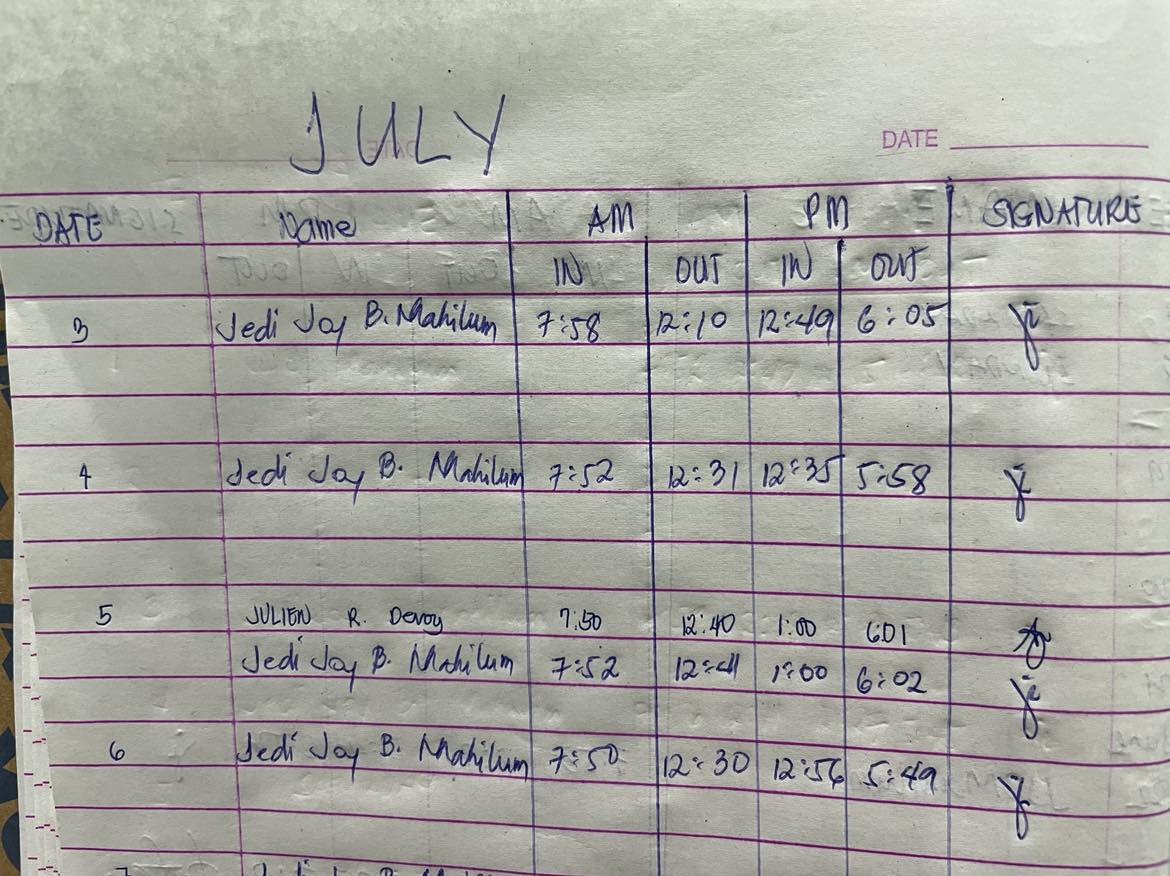 JULY
DATE
DATE Name AM PM SIGNATURE
IN OUT IN OUT
3 Jedi Jay B. Mahilum 7:58 12:10 12:49 6:05
4 Jedi Jay B. Mahilum 7:52 12:31 12:35 5:58
5 JULIEN R. Devoy 7:50 12:40 1:00 6:01
Jedi Jay B. Mahilum 7:52 12:41 1:00 6:02
6 Jedi Jay B. Mahilum 7:50 12:30 12:56 5:49